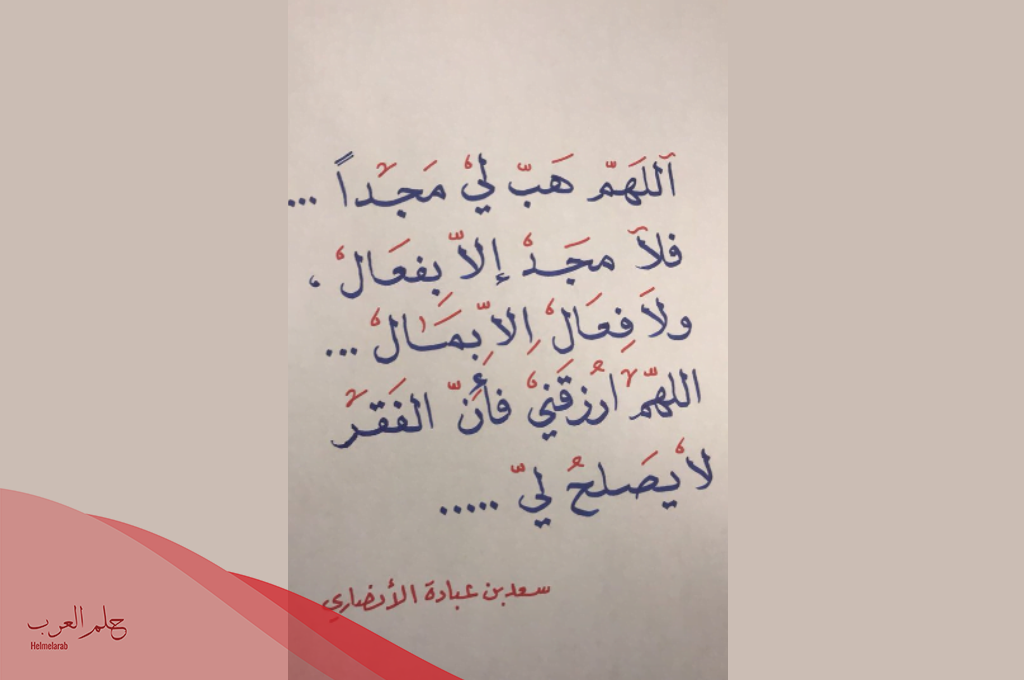 اَللَهَمّ هَبّ ليْ مَجَداً ...
فلاَ مجَدْ إلاّ بِفعَالْ ،
ولاَ فِعَالْ اِلاّ بِمَالْ ...
اللهّمّ ارُزقَنيْ فأِنّ الفَقرَ
لاْ يصَلحُ ليّ .....
سعد بن عبادة الأنصاري
حلم العرب
Helmelarab